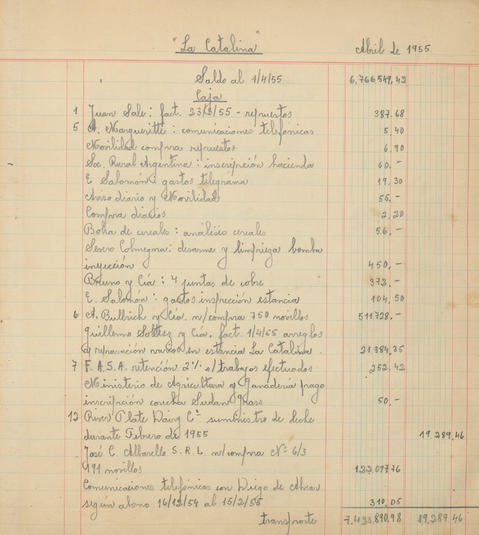 "La Catalina" Abril de 1955
Saldo al 1/4/55 6.766.549,42
Caja
1 Juan Sale: fact. 23/3/55 - repuestos 387.68
5 A. Margueritte: comunicaciones telefónicas 5,40
Movilidad compra repuestos 6,90
Soc. Rural Argentina: inscripción hacienda 60,-
E. Salomón: gastos telegrama 19,30
Aviso diario y Movilidad 55,-
Compra diarios 2,20
Bolsa de cereales: análisis cereales 56,-
Severo Colmegna: desarme y limpieza bomba
inyección 450,-
Bruno y Cía: 4 juntas de cobre 372,-
E. Salomón: gastos inspección estancia 104,50
6 A. Bullrich y Cía. n/compra 750 novillos 511.728,-
Guillermo y Cía. fact. 1/4/55 arreglos
y reparación en estancia La Catalina 21.384,35
7 F.A.S.A. retención 2% s/trabajos efectuados 252,42
Ministerio de Agricultura y Ganadería pago
inscripción Sudan Grass 50,-
12 River Plate Dairy Cº suministro de leche
durante Febrero de 1955 19.289,46
José C. Albarello S.R.L. n/compra Nº 6/3
191 novillos 122.097,76
Comunicaciones telefónicas con Diego de Alvear
según abono 16/12/54 al 15/2/55 310,05
transporte 7.423.890,98 19.289,46